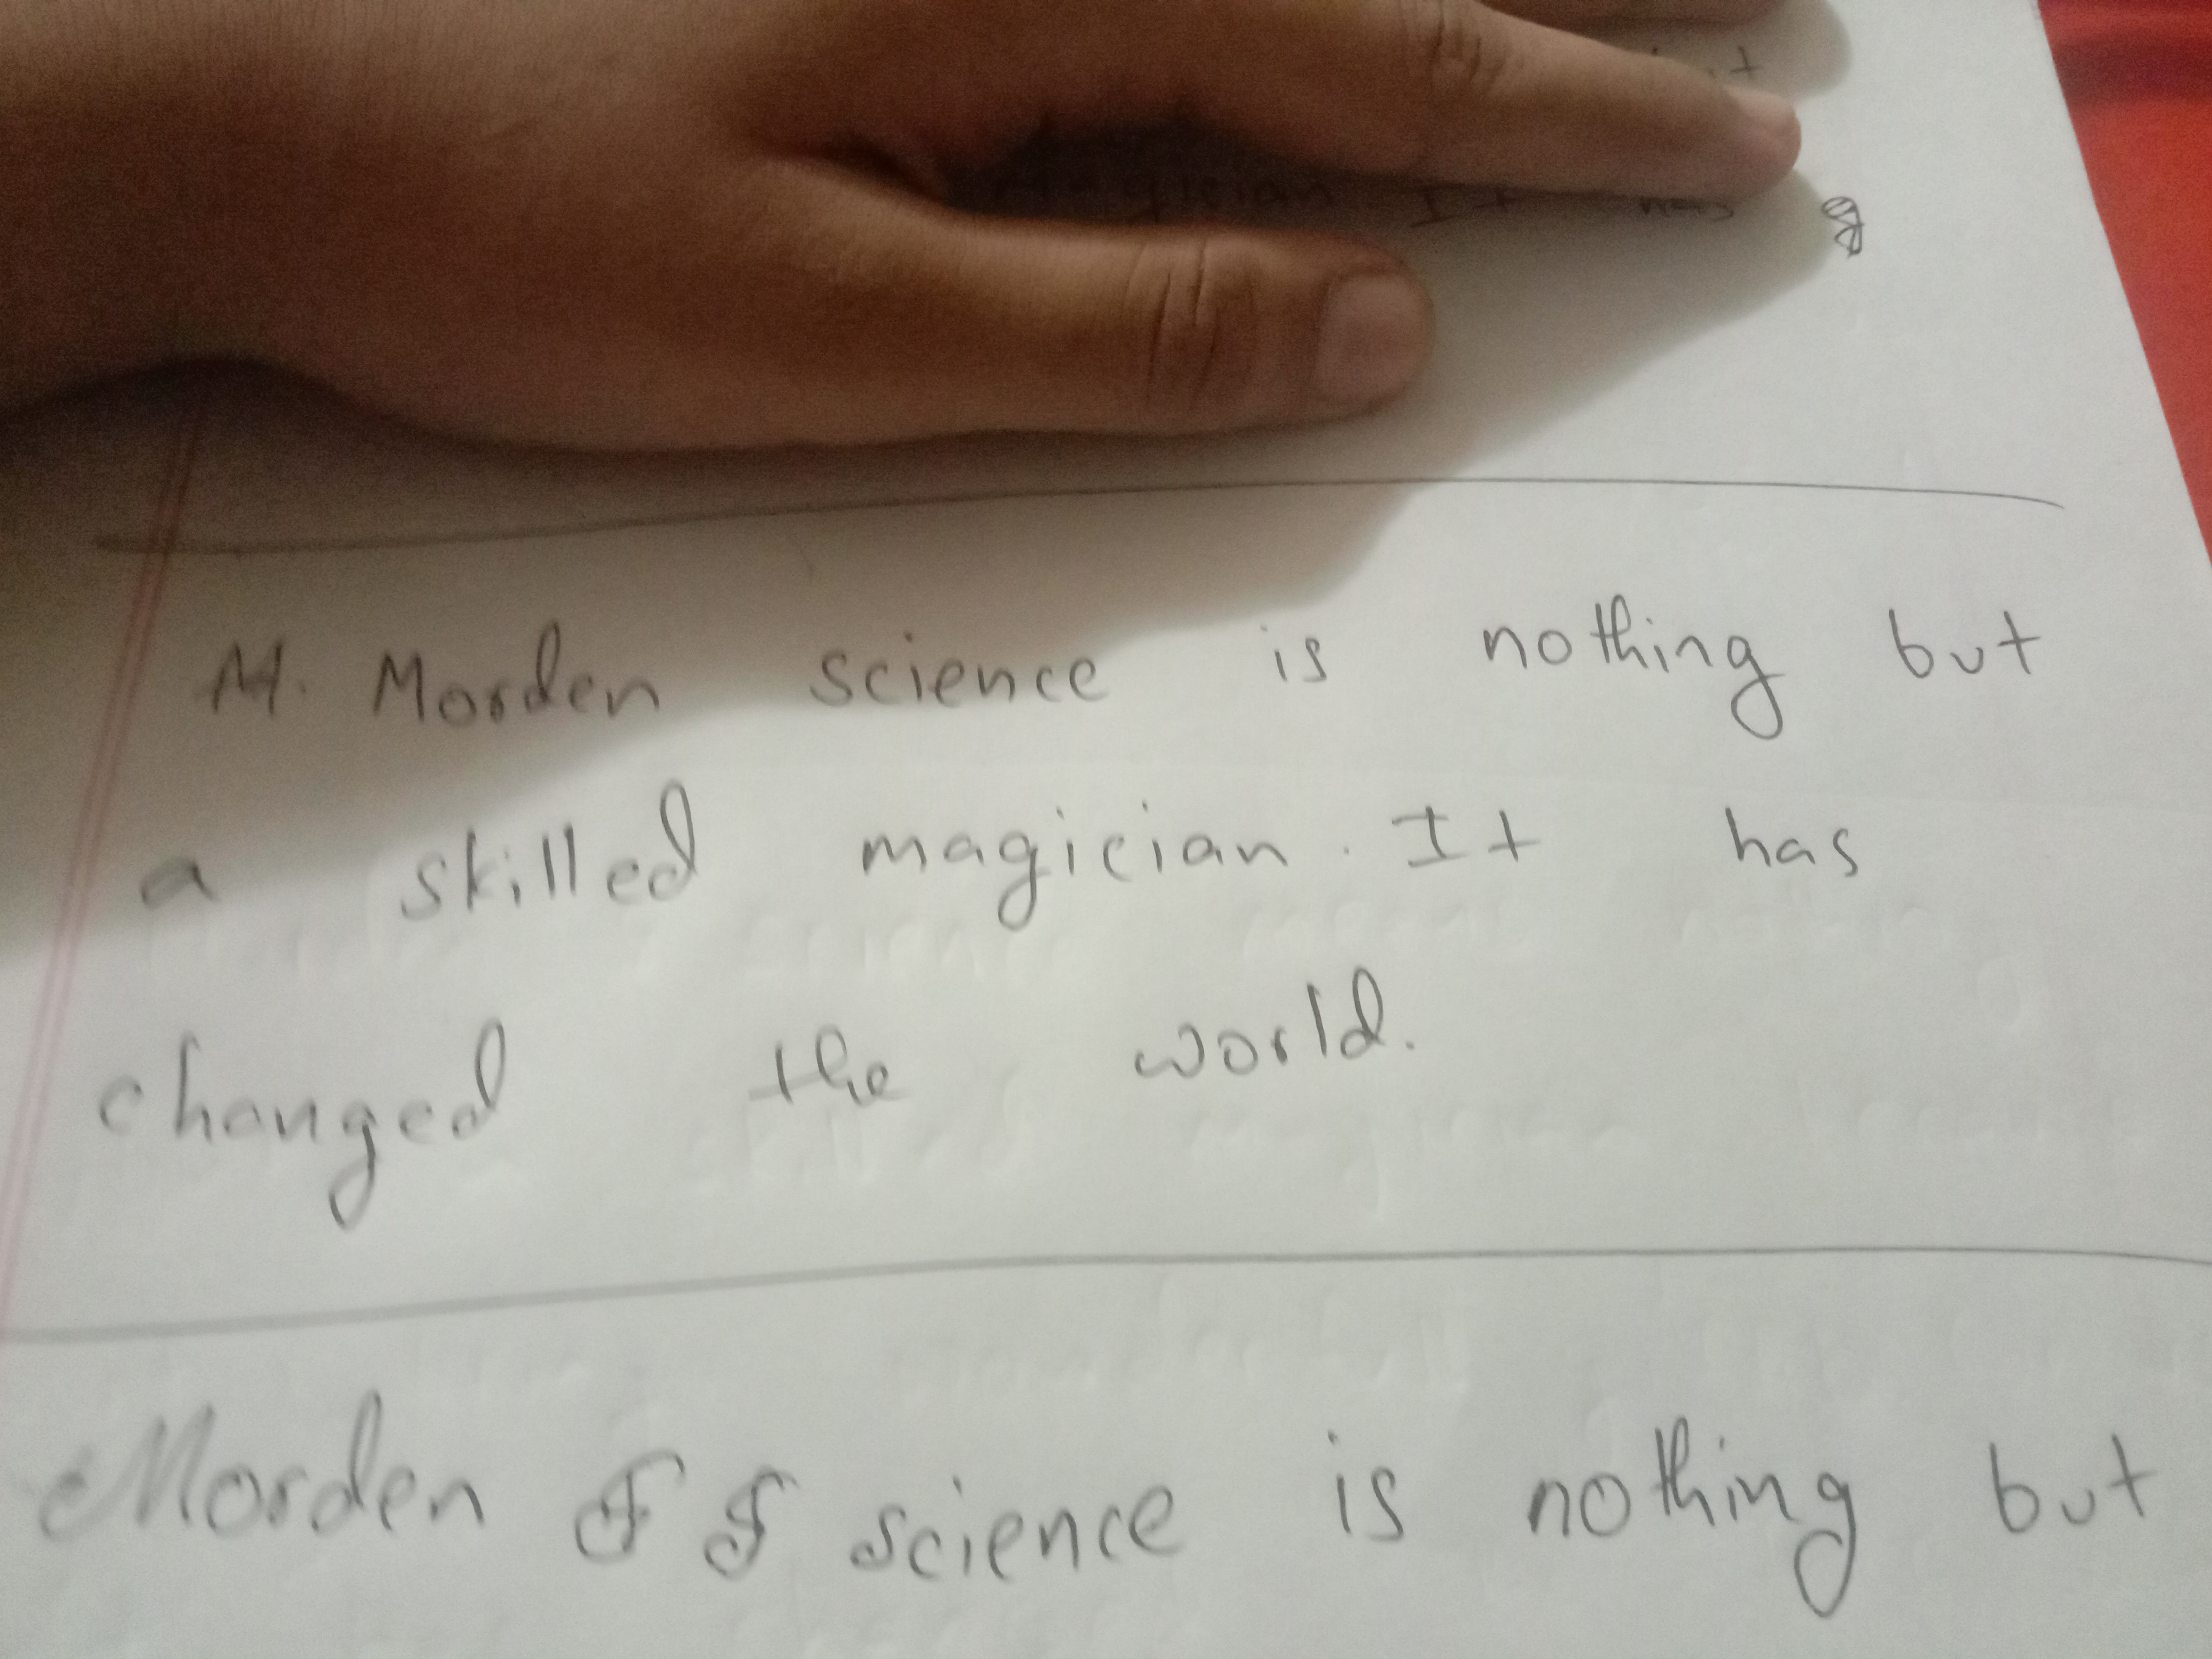 It has
M. Morden science is nothing but
a skilled magician. It has
changed the world.
Morden science is nothing but